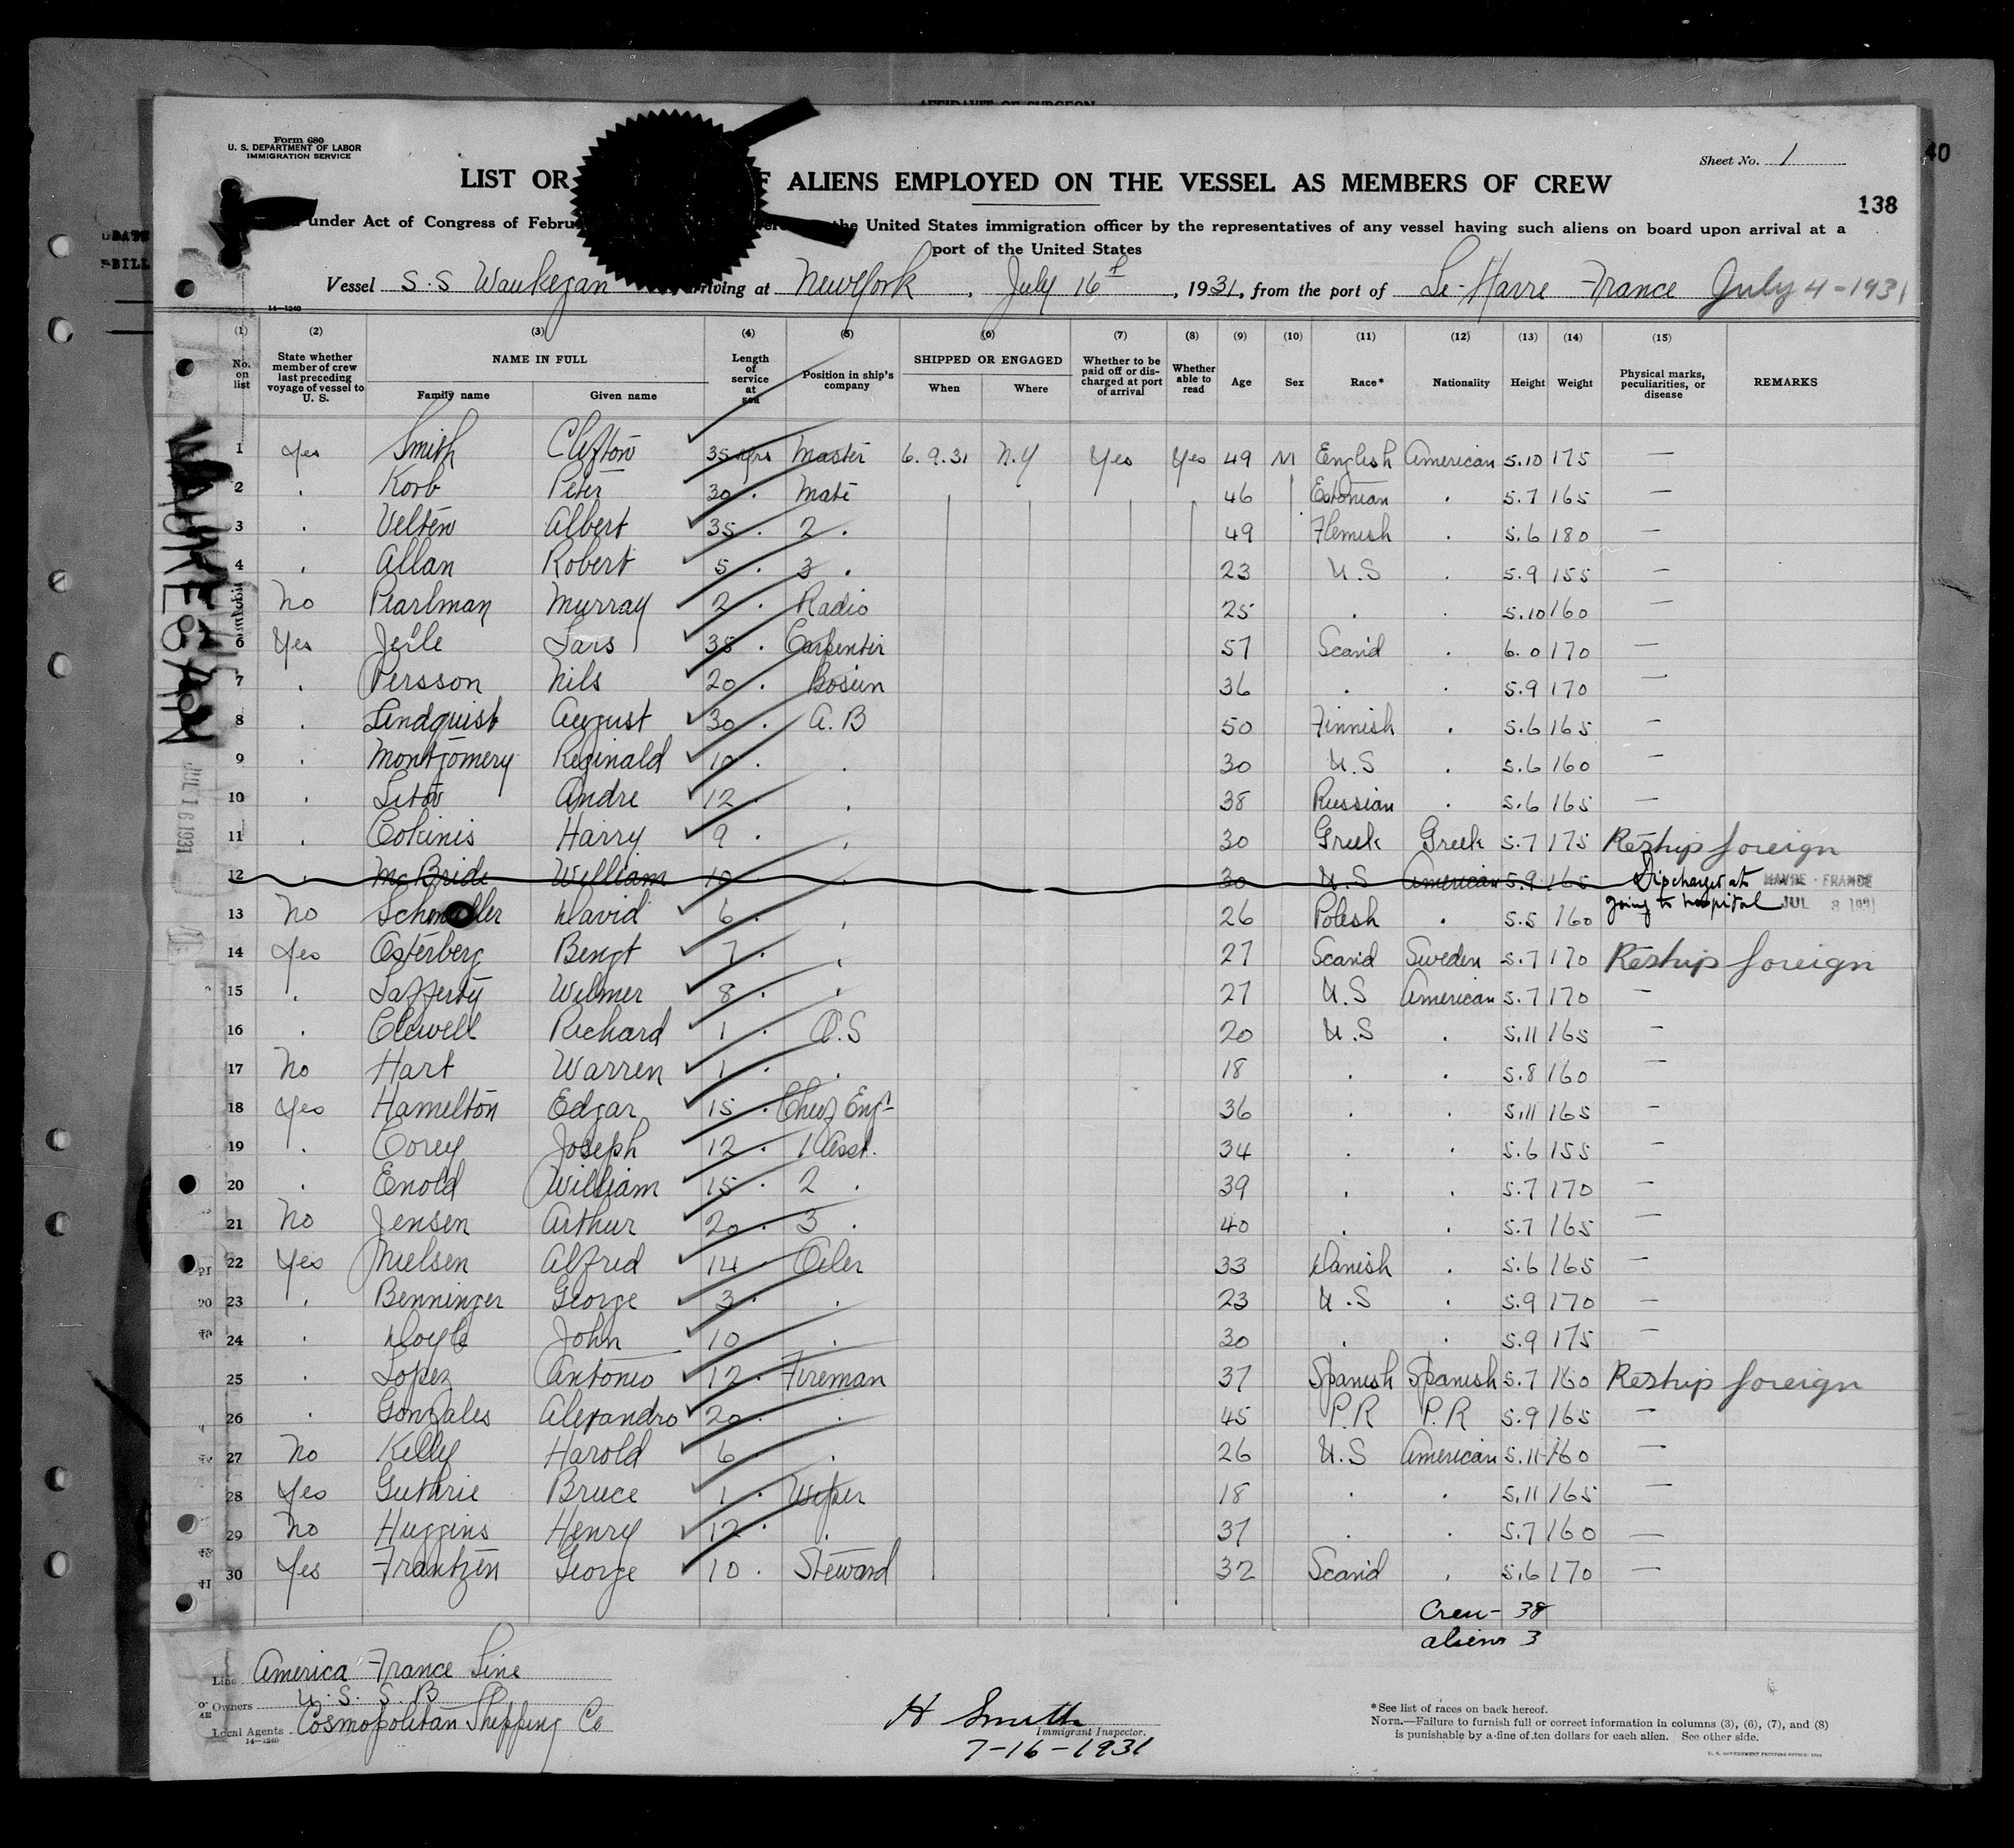 AFFIDAVIT OF SURGEON
Form 680
U. S. DEPARTMENT OF LABOR
IMMIGRATION SERVICE
Sheet No. 1
40
138
LIST OR F ALIENS EMPLOYED ON THE VESSEL AS MEMBERS OF CREW
under Act of Congress of Febru the United States immigration officer by the representatives of any vessel having such aliens on board upon arrival at a
port of the United States
Vessel S.S Waukegan arriving at New York, July 16th, 1931, from the port of Le-Havre France July 4-1931
14—1240
(1) (2) (3) (4) (5) (6) (7) (8) (9) (10) (11) (12) (13) (14) (15)
No. on list State whether member of crew last preceding voyage of vessel to U. S. NAME IN FULL Family name Given name Length of service at sea Position in ship's company SHIPPED OR ENGAGED When Where Whether to be paid off or discharged at port of arrival Whether able to read Age Sex Race* Nationality Height Weight Physical marks, peculiarities, or disease REMARKS
1 Yes Smith Clifton 35 yrs Master 6.9.31 N.Y Yes Yes 49 M English American 5.10 175 —
2 . Korb Peter 30 . Mate 46 Estonian . 5.7 165 —
3 . Velten Albert 35 . 2 . 49 Flemish . 5.6 180 —
4 . Allan Robert 5 . 3 . 23 U.S . 5.9 155 —
No Pearlman Murray 2 . Radio 25 . . 5.10 160 —
6 Yes Jelle Lars 38 . Carpenter 57 Scand . 6.0 170 —
7 . Persson Nils 20 . Bosun 36 . . 5.9 170 —
8 . Lindquist August 30 . A.B 50 Finnish . 5.6 165 —
9 . Montgomery Reginald 10 . . 30 U.S . 5.6 160 —
10 . Litov Andre 12 . . 38 Russian . 5.6 165 —
11 . Cokinis Harry 9 . . 30 Greek Greek 5.7 175 Reship foreign
12 . McBride William 10 . 30 U.S American 5.9 165 Discharged at HAVRE - FRANCE
going to hospital JUL 8 1931
13 No David 6 . . 26 Polish . 5.5 160
14 Yes Osterberg Bengt 7 . . 27 Scand Sweden 5.7 170 Reship foreign
15 . Lafferty Wilmer 8 . . 27 U.S American 5.7 170 —
16 . Clewell Richard 1 . O.S 20 U.S . 5.11 165 —
17 No Hart Warren 1 . . 18 . . 5.8 160 —
18 Yes Hamelton Edgar 15 . Chief Engr 36 . . 5.11 165 —
19 . Corey Joseph 12 . 1 Asst. 34 . . 5.6 155 —
20 . Enold William 15 . 2 . 39 . . 5.7 170 —
21 No Jensen Arthur 20 . 3 . 40 . . 5.7 165 —
22 Yes Nielsen Alfred 14 . Oiler 33 Danish . 5.6 165 —
23 . Benninger George 3 . . 23 U.S . 5.9 170 —
24 . Doyle John 10 . 30 . . 5.9 175 —
25 . Lopez Antonio 12 . Fireman 37 Spanish Spanish 5.7 160 Reship foreign
26 . Gonzales Alexandro 20 . . 45 P.R P.R 5.9 165 —
27 No Kelly Harold 6 . . 26 U.S American 5.11 160 —
28 Yes Guthrie Bruce 1 . Wiper 18 . . 5.11 165 —
29 No Huggins Henry 12 . . 37 . . 5.7 160 —
30 Yes Frantzen George 10 . Steward 32 Scand . 5.6 170 —
WAUKEGAN
JUL 16 1931
Crew- 38
aliens 3
Line America France Line
Owners U.S.S.B
Local Agents Cosmopolitan Shipping Co
14—1240
H Smith
Immigrant Inspector.
7-16-1931
*See list of races on back hereof.
NOTE.—Failure to furnish full or correct information in columns (3), (6), (7), and (8)
is punishable by a fine of ten dollars for each alien. See other side.